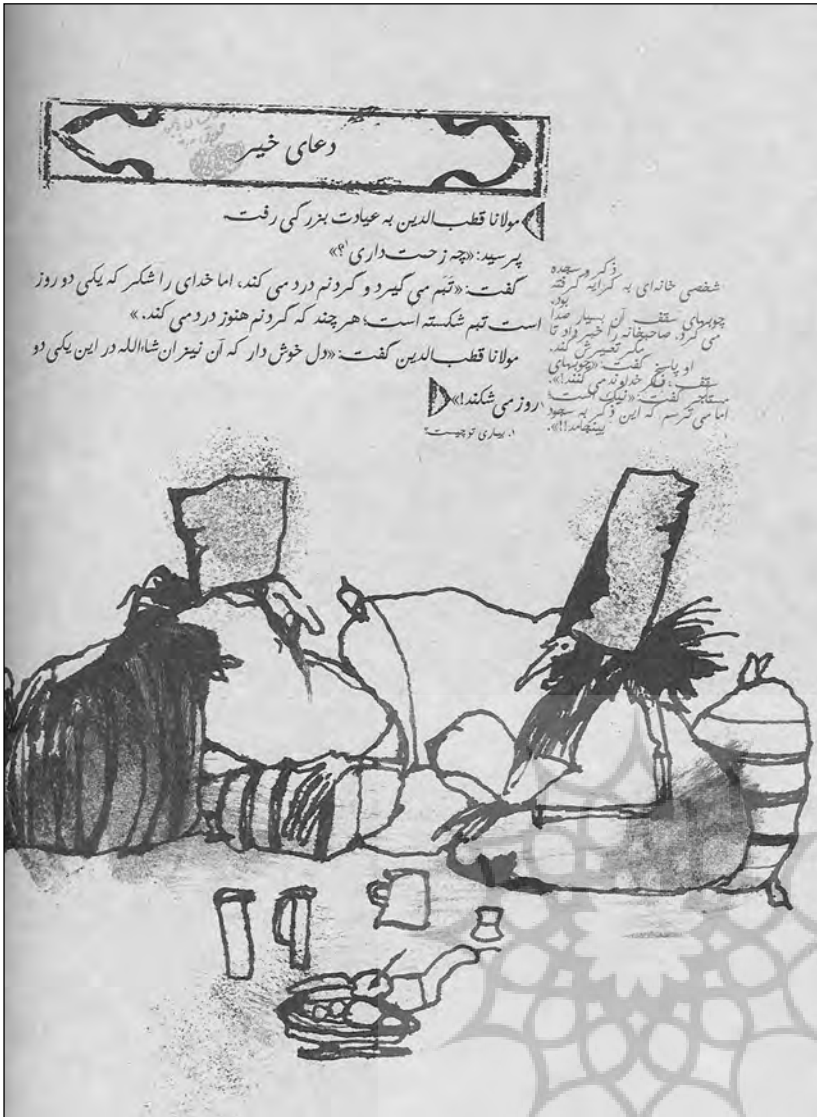 دعای خیر
مولانا قطب‌الدین به عیادت بزرگی رفت.
پرسید: «چه زحمت داری۱؟»
گفت: «تَبَم می گیرد و گردنم درد می کند، اما خدای را شکر که یکی دو روز
است تبم شکسته است؛ هر چند که گردنم هنوز درد می کند.»
مولانا قطب‌الدین گفت: «دل خوش دار که آن نیز ان‌شاءالله در این یکی دو
روز می شکند!»
۱. بیماری تو چیست؟
ذکر و سجده
شخصی خانه‌ای به کرایه گرفته
بود.
چوبهای سقف آن بسیار صدا
می کرد. صاحبخانه را خبر داد تا
مگر تعمیرش کند.
او پاسخ گفت: «چوبهای
سقف، ذکر خداوند می کنند!».
مستأجر گفت: «نیک است؛
اما می ترسم که این ذکر به سجود
بینجامد!!».